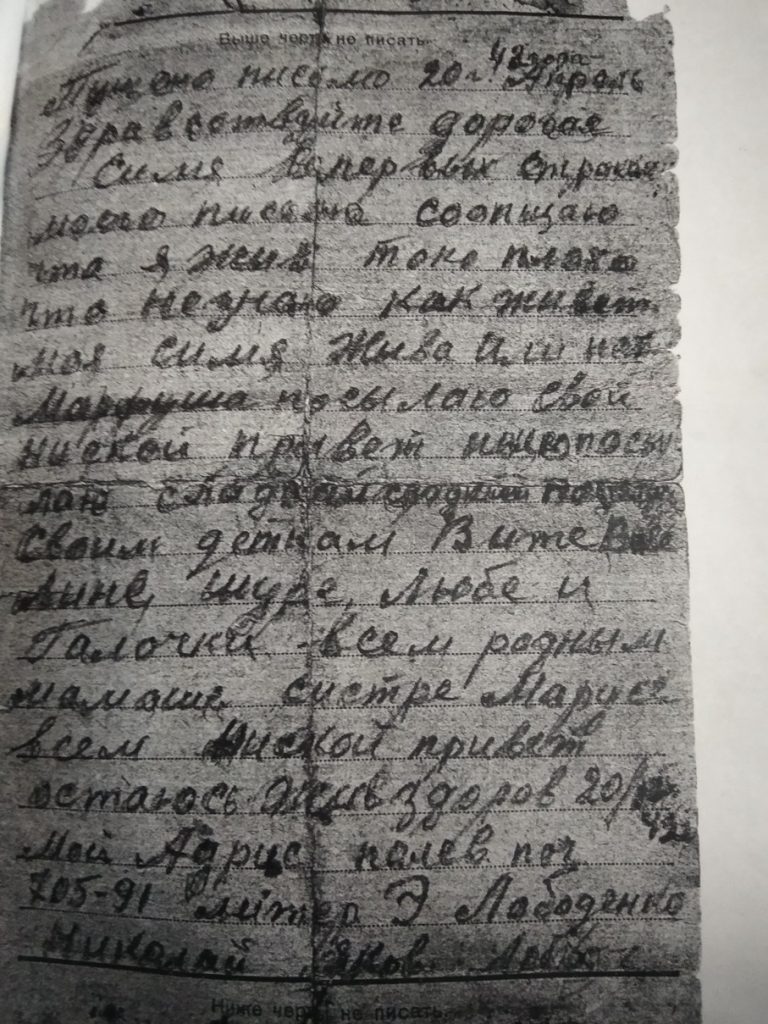 Выше черты не писать
Пущено письмо 20го Апрель 42 года
Здравствуйте дорогая
Симя вопервых строках
моего письма соопщаю
что я жив токо плохо
что незнаю как живет
моя симя Жива или нет
Марфуша посылаю свой
ниской привет посы
лаю сладкай
своим деткам Вите Вове
Нине, Шуре, Любе и
Галочки - всем родным
мамаши систре Марусе
всем ниской привет
остаюсь Жив здоров 20/
42
Мой Адрис полев поч
705-91 литер Э Лободенко
Николай Яков
Ниже черты не писать